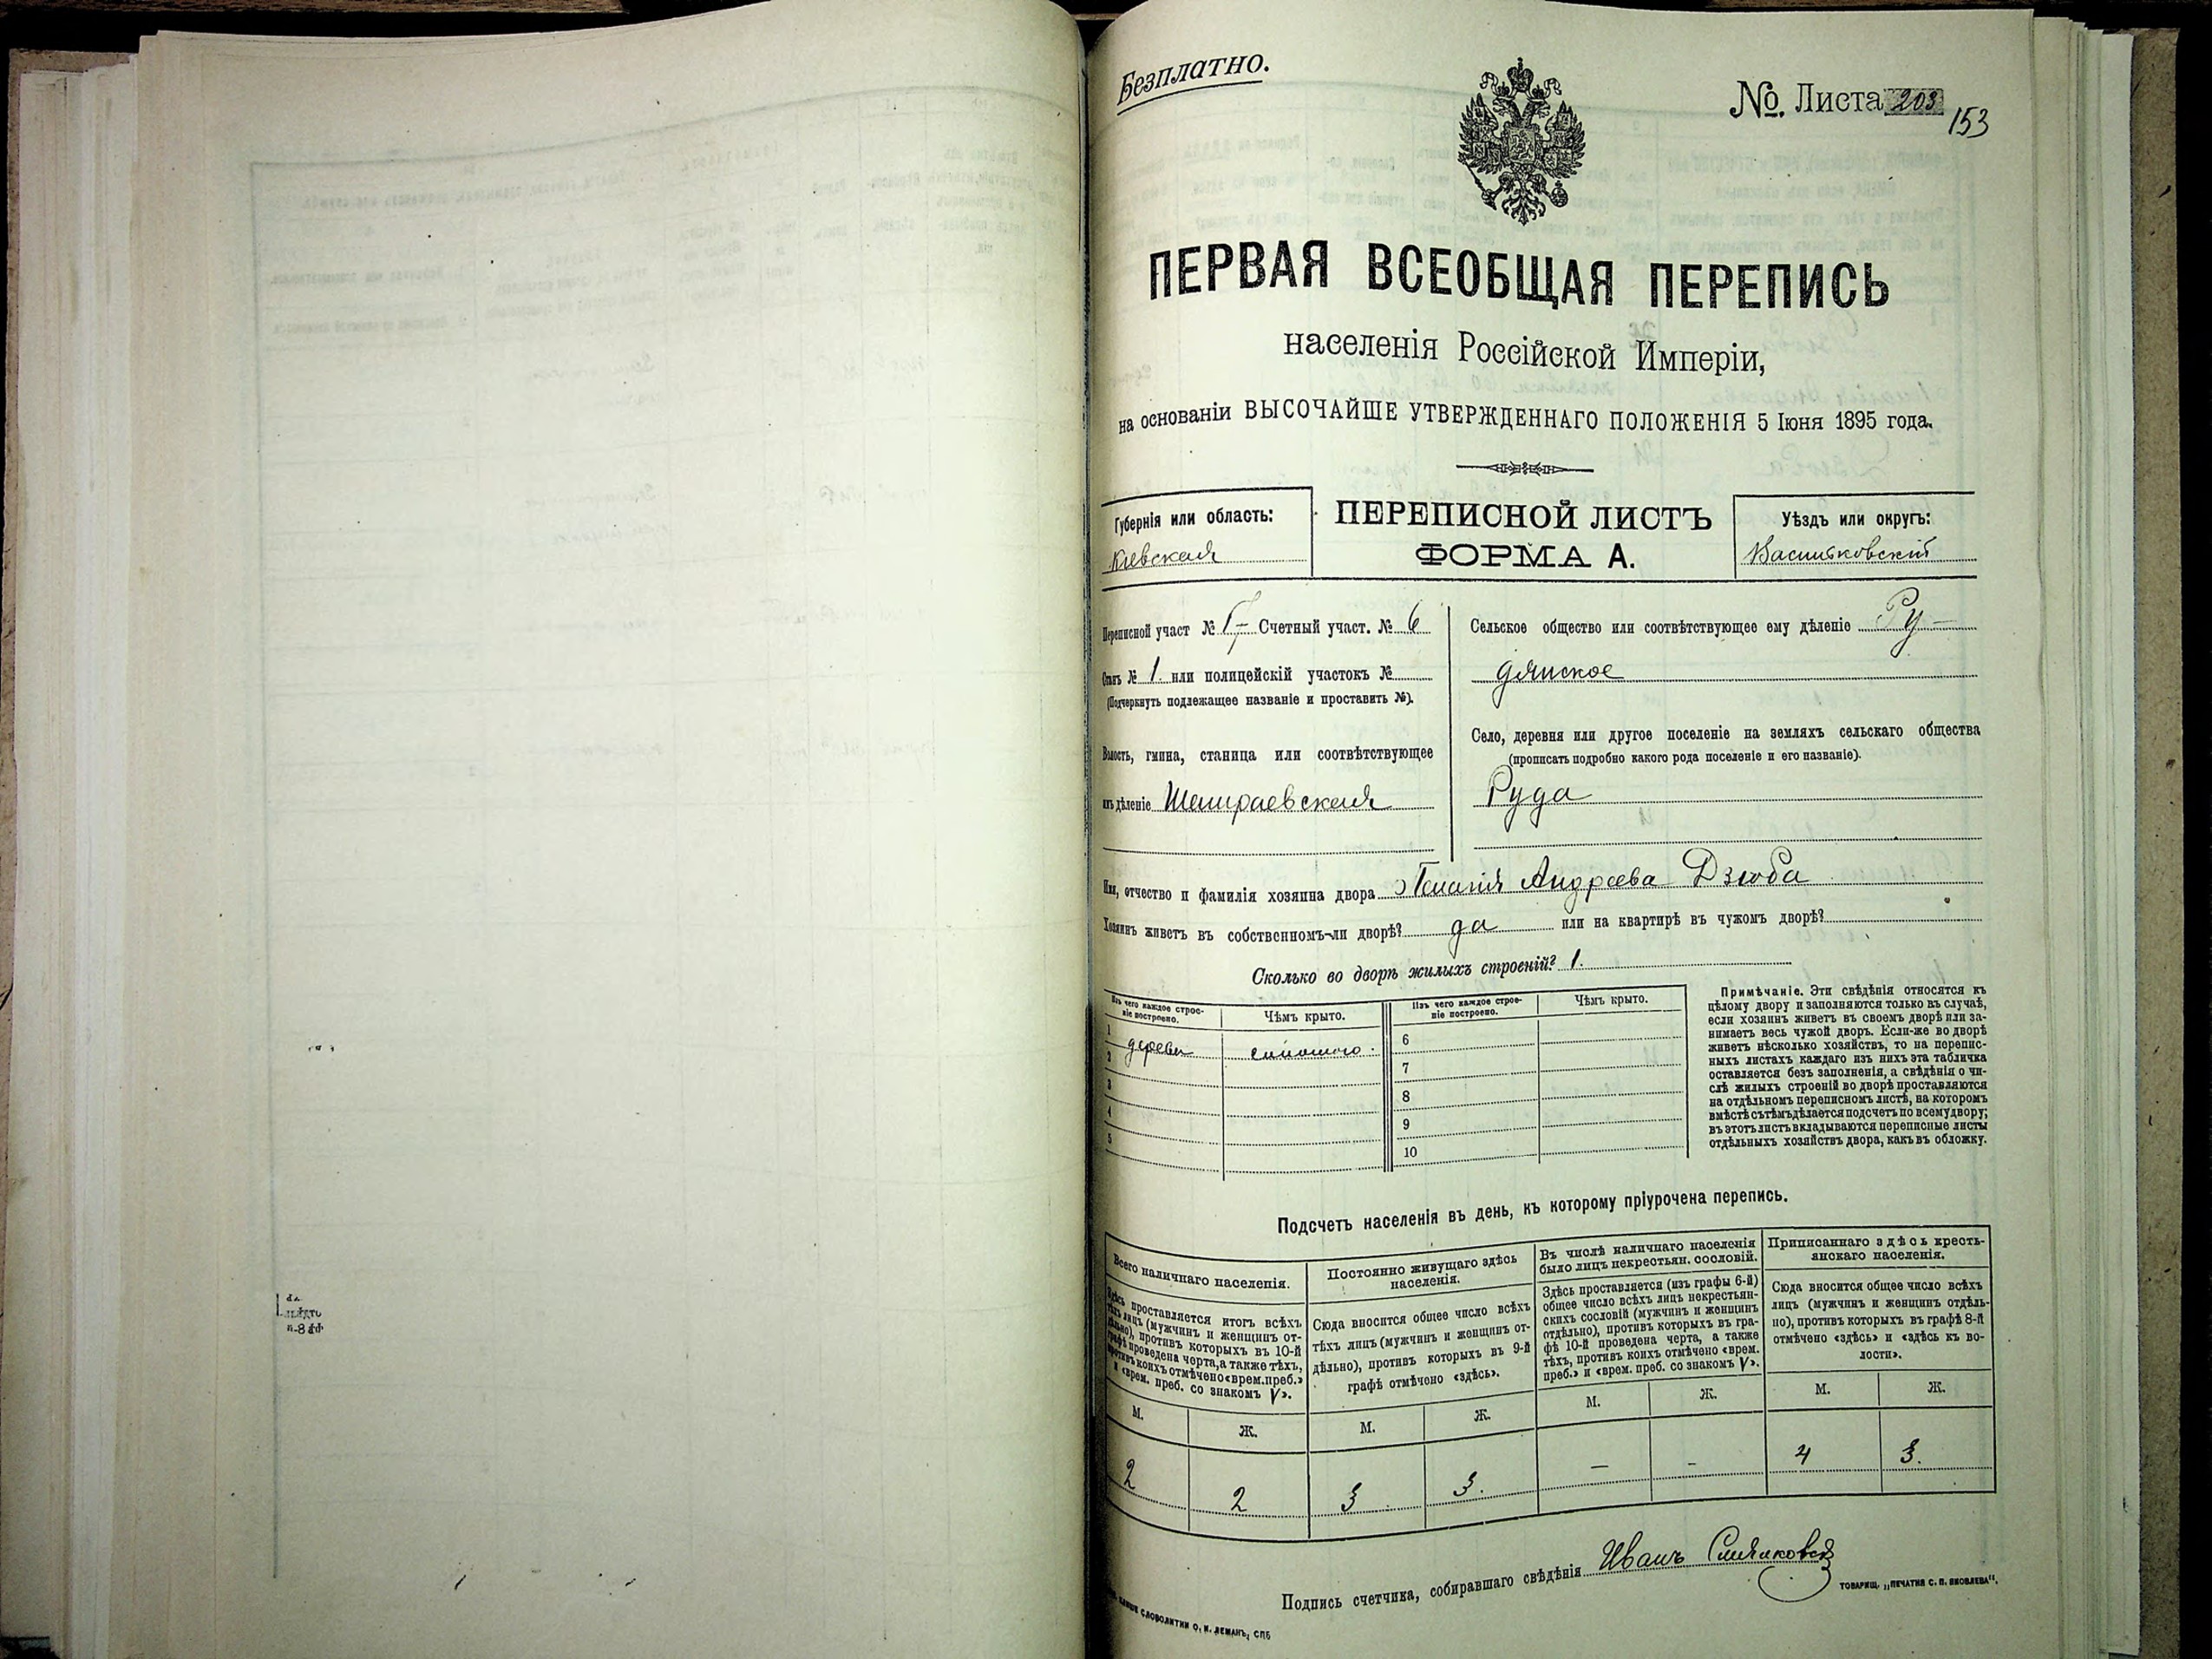 Безплатно.
№ Листа 203
153
ПЕРВАЯ ВСЕОБЩАЯ ПЕРЕПИСЬ
населенія Россійской Имперіи,
на основаніи ВЫСОЧАЙШЕ УТВЕРЖДЕННАГО ПОЛОЖЕНІЯ 5 Іюня 1895 года.
Губернія или область:
Кіевская
ПЕРЕПИСНОЙ ЛИСТЪ
ФОРМА А.
Уѣздъ или округъ:
Васильковскій
Переписной участ № Счетный участ. № 6
Станъ № 1. или полицейскій участокъ №
(Подчеркнуть подлежащее названіе и проставить №).
Волость, гмина, станица или соотвѣтствующее
имъ дѣленіе Шамраевская
Сельское общество или соотвѣтствующее ему дѣленіе Ру-
дянское
Село, деревня или другое поселеніе на земляхъ сельскаго общества
(прописать подробно какого рода поселеніе и его названіе).
Руда
Имя, отчество и фамилія хозяина двора Пелагія Андреева Дзюба
Хозяинъ живетъ въ собственномъ-ли дворѣ? да или на квартирѣ въ чужомъ дворѣ?
Сколько во дворѣ жилыхъ строеній? 1.
Изъ чего каждое строе-
ніе построено.
Чѣмъ крыто.
Изъ чего каждое строе-
ніе построено.
Чѣмъ крыто.
1 дерева соломою.
2
3
4
5
6
7
8
9
10
Примѣчаніе. Эти свѣдѣнія относятся къ
цѣлому двору и заполняются только въ случаѣ,
если хозяинъ живетъ въ своемъ дворѣ или за-
нимаетъ весь чужой дворъ. Если-же во дворѣ
живетъ нѣсколько хозяйствъ, то на перепис-
ныхъ листахъ каждаго изъ нихъ эта табличка
оставляется безъ заполненія, а свѣдѣнія о чи-
слѣ жилыхъ строеній во дворѣ проставляются
на отдѣльномъ переписномъ листѣ, на которомъ
вмѣстѣ съ тѣмъ дѣлается подсчетъ по всему двору;
въ этотъ листъ вкладываются переписные листы
отдѣльныхъ хозяйствъ двора, какъ въ обложку.
Подсчетъ населенія въ день, къ которому пріурочена перепись.
Всего наличнаго населенія.
Здѣсь проставляется итогъ всѣхъ
тѣхъ лицъ (мужчинъ и женщинъ от-
дѣльно), противъ которыхъ въ 10-й
графѣ проведена черта, а также тѣхъ,
противъ коихъ отмѣчено «врем. преб.»
и «врем. преб. со знакомъ V».
Постоянно живущаго здѣсь
населенія.
Сюда вносится общее число всѣхъ
тѣхъ лицъ (мужчинъ и женщинъ от-
дѣльно), противъ которыхъ въ 9-й
графѣ отмѣчено «здѣсь».
Въ числѣ наличнаго населенія
было лицъ некрестьян. сословій.
Здѣсь проставляется (изъ графы 6-й)
общее число всѣхъ лицъ некрестьян-
скихъ сословій (мужчинъ и женщинъ
отдѣльно), противъ которыхъ въ гра-
фѣ 10-й проведена черта, а также
тѣхъ, противъ коихъ отмѣчено «врем.
преб.» и «врем. преб. со знакомъ V».
Приписаннаго здѣсь кресть-
янскаго населенія.
Сюда вносится общее число всѣхъ
лицъ (мужчинъ и женщинъ отдѣль-
но), противъ которыхъ въ графѣ 8-й
отмѣчено «здѣсь» и «здѣсь къ во-
лости».
М. Ж. М. Ж. М. Ж. М. Ж.
2 2 3 3. — - 4 3.
Подпись счетчика, собиравшаго свѣдѣнія Иванъ
СЛОВОЛИТНИ О. И. ЛЕМАНЪ, СПБ
ТОВАРИЩ. „ПЕЧАТНЯ С. П. ЯКОВЛЕВА“.